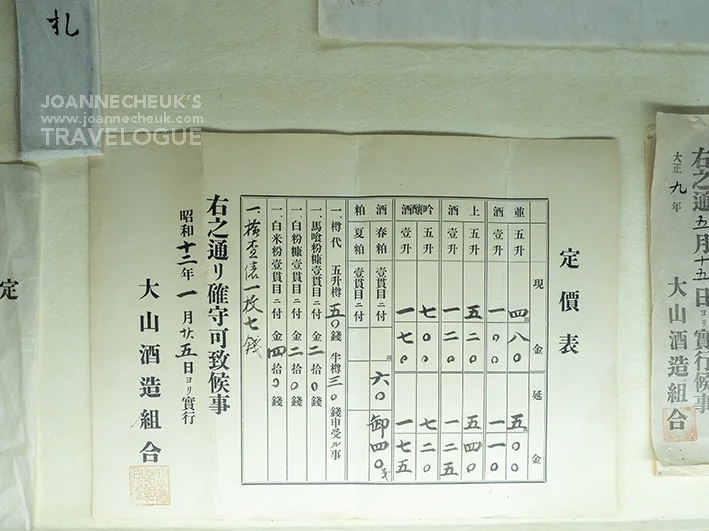 札
JOANNECHEUK'S
www.joannecheuk.com
TRAVELOGUE
定價表
現金 延金
並酒 五升 四八〇 五〇〇
壹升 一〇〇 一一〇
上酒 五升 五二〇 五四〇
壹升 一二〇 一二五
吟釀酒 五升 七〇〇 七二〇
壹升 一七〇 一七五
酒粕 春粕 壹貫目ニ付 六〇 卸四〇
夏粕 壹貫目ニ付
一、樽代 五升樽 五〇錢 半樽 三〇錢申受ル事
一、馬喰粉糠壹貫目ニ付 金二拾〇錢
一、白粉糠壹貫目ニ付 金二拾〇錢
一、白米粉壹貫目ニ付 金四拾〇錢
一、檢查俵一枚七錢
右之通リ確守可致候事
昭和十二年一月廿五日ヨリ實行
大山酒造組合
右之通五月十五日ヨリ實行候事
大正九年
大山酒造組合
定